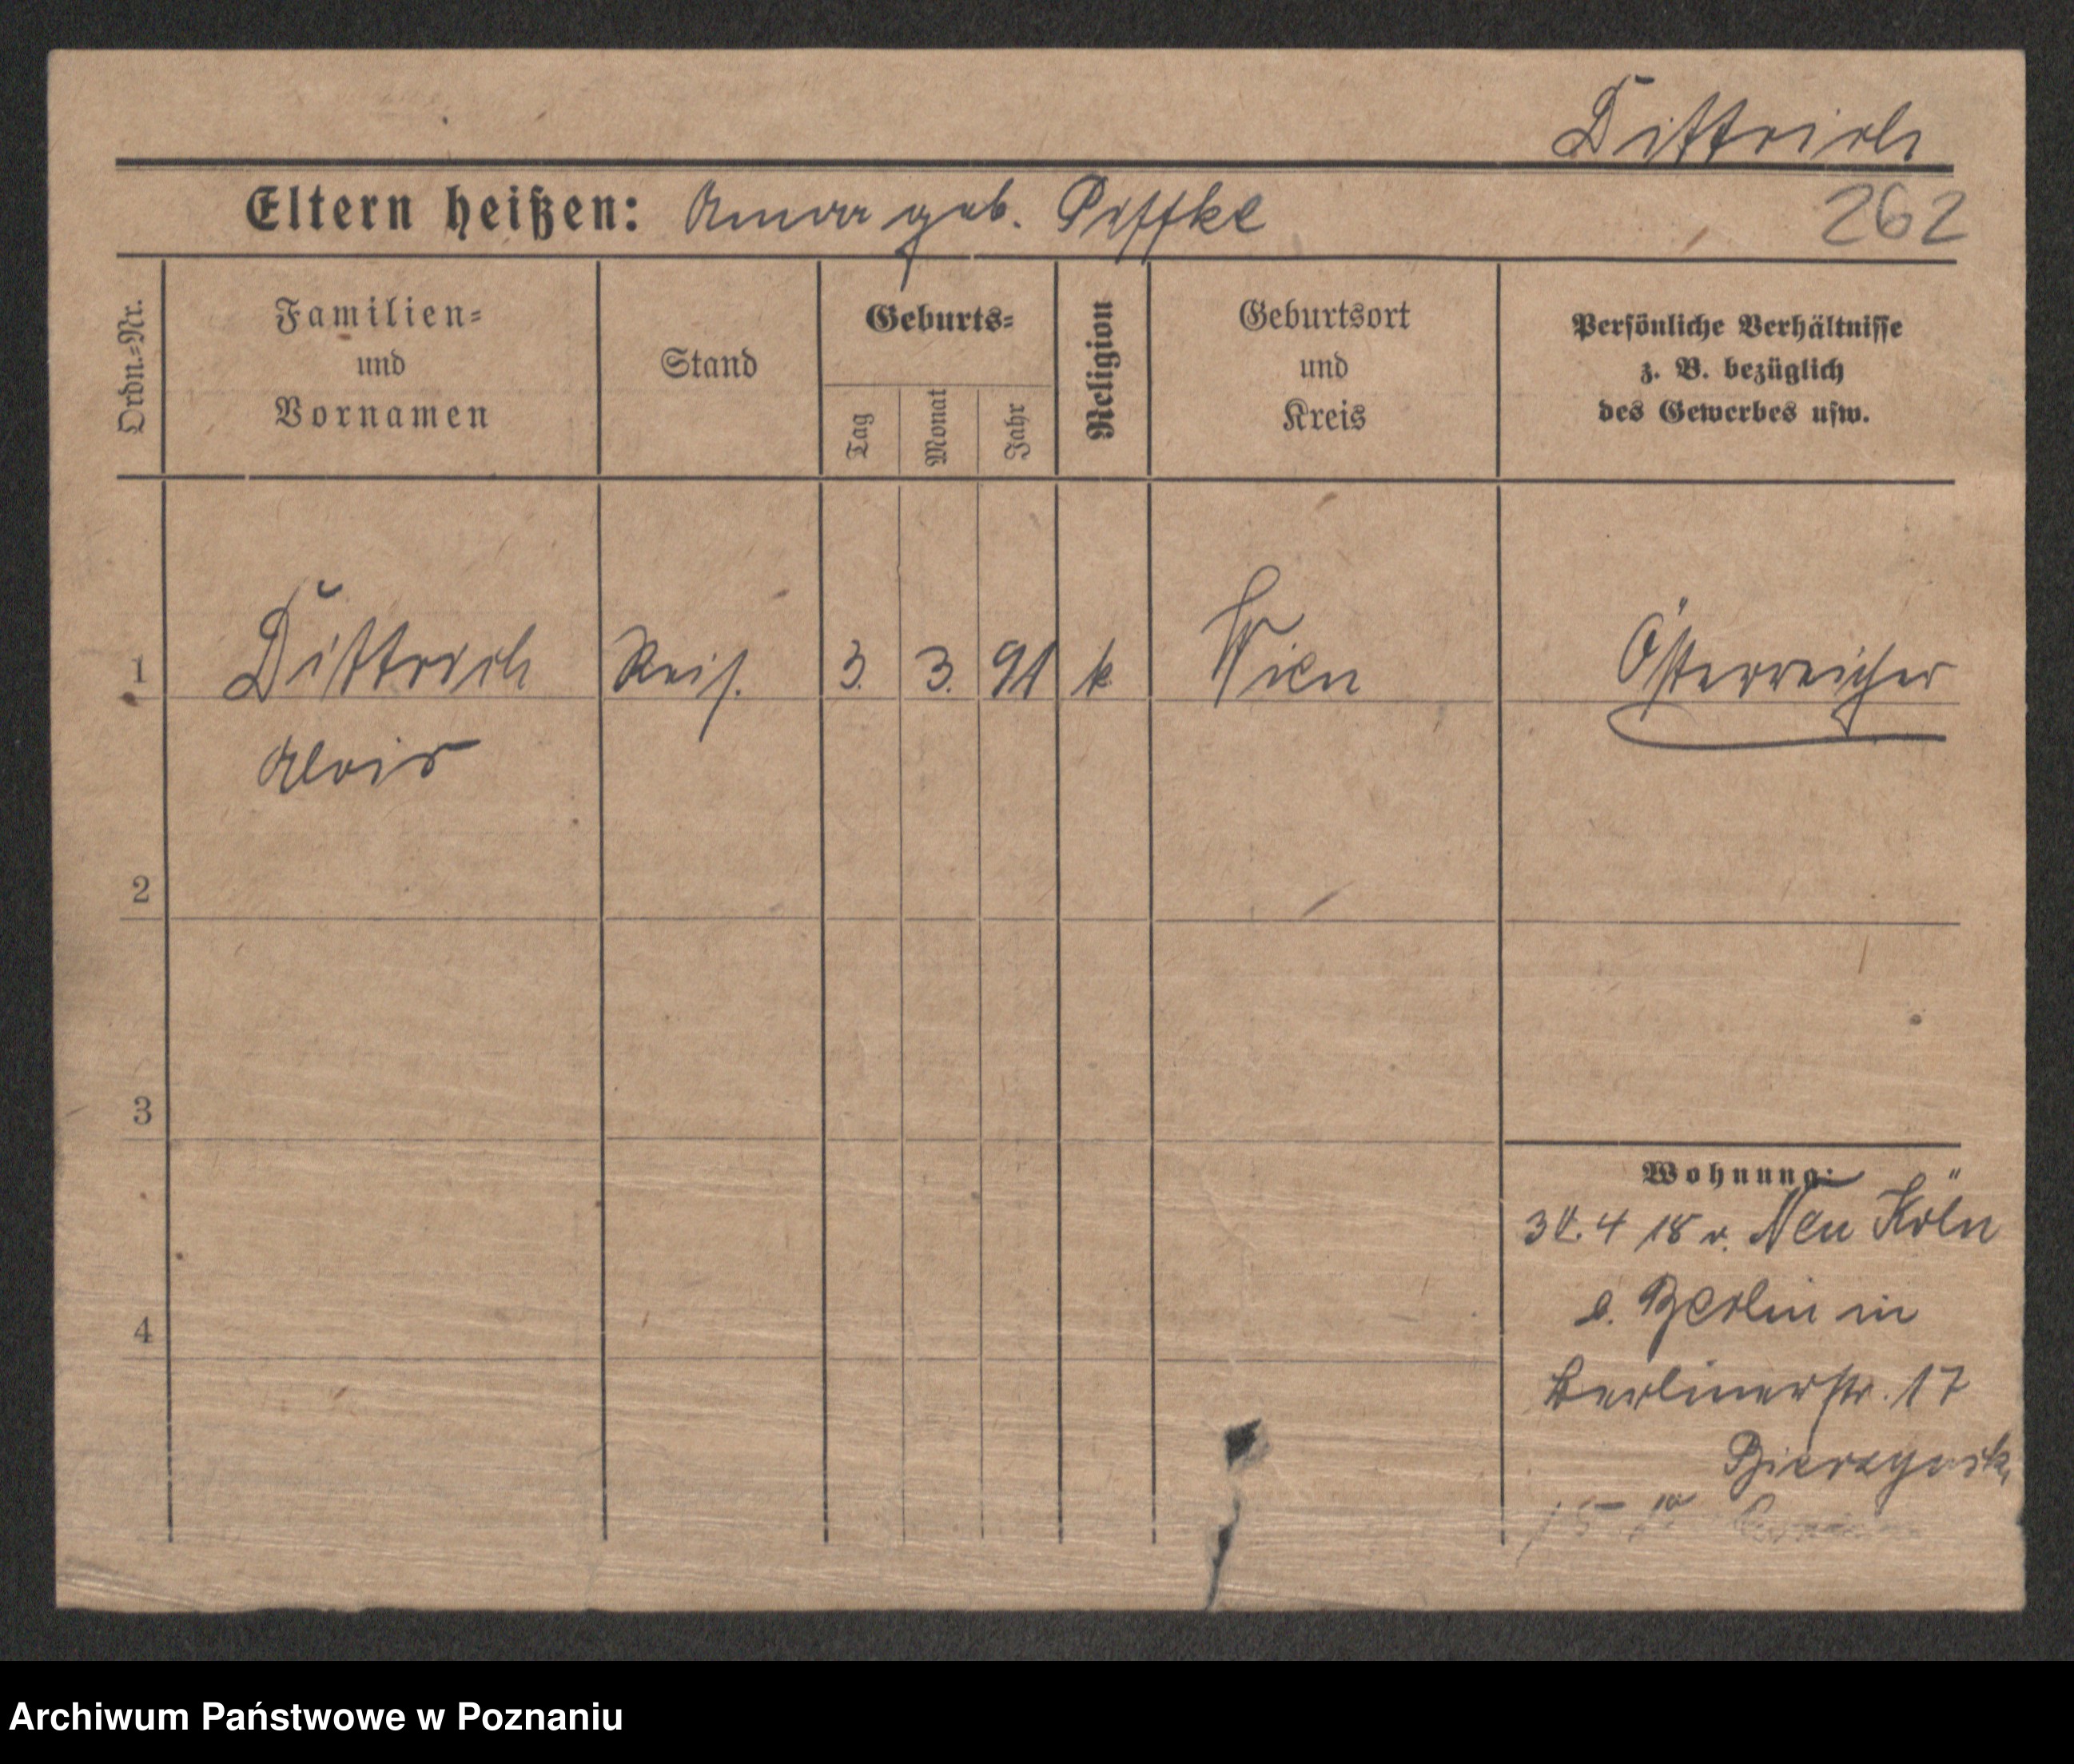 Dittrich
Eltern heißen: Anna geb. Piffke
262
Ordn.=Nr.
Familien=
und
Vornamen
Stand
Geburts=
Tag
Monat
Jahr
Religion
Geburtsort
und
Kreis
Persönliche Verhältnisse
z. B. bezüglich
des Gewerbes usw.
1 Dittrich Reis. 3. 3. 91 k Wien Österreicher
Alois
2
3
4
Wohnung:
4 18 v. Neu Köln
b. Berlin in
Berlinerstr. 17
Archiwum Państwowe w Poznaniu